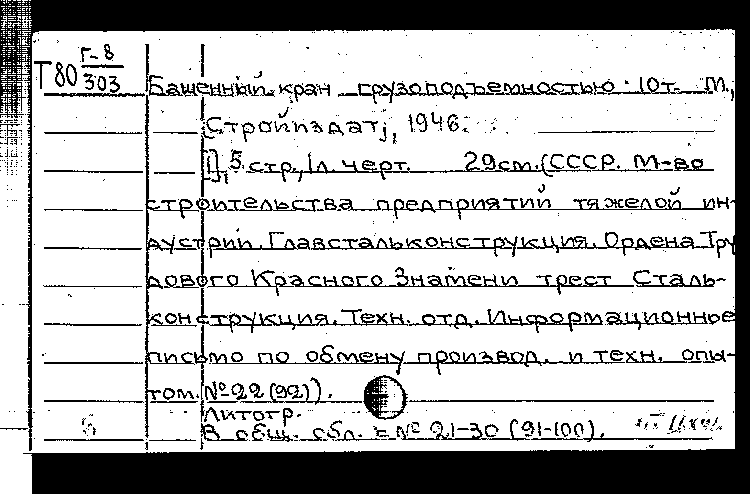 Г-8
Т80 303
Башенный кран грузоподъемностью 10т. М.,
Стройиздат, 1946.
[1], 5 стр., 1л. черт. 29см. (СССР. М-во
строительства предприятий тяжелой ин-
дустрии. Главстальконструкция. Ордена Тру
дового Красного Знамени трест Сталь-
конструкция. Техн. отд. Информационное
письмо по обмену производ. и техн. опы-
том. №22 (92)).
Литогр.
Б В общ. обл. = № 21-30 (91-100).